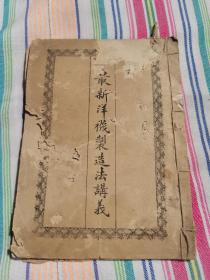 最新洋機製造法講義